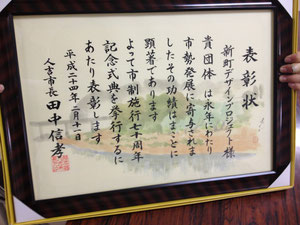 表彰状
新町デザインプロジェクト様
貴団体は永年にわたり
市勢発展に寄与されま
したその功績はまことに
顕著であります
よって市制施行七十周年
記念式典を挙行するに
あたり表彰します
平成二十四年二月十一日
人吉市長 田中信孝